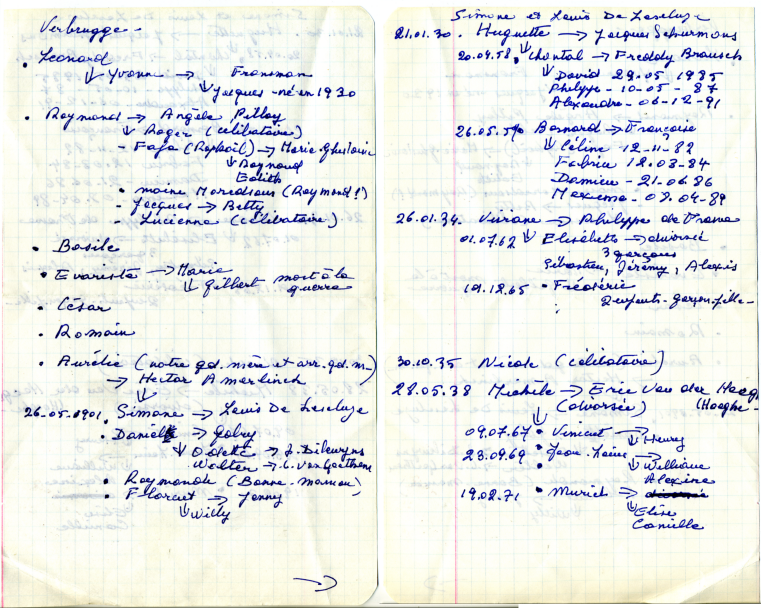 Verbrugge -
• Léonard
↳ Yvonne → Fransman
↳ Jacques - né en 1920
• Raymond → Angèle
↳ Roger (célibataire)
- Fafa (Raphaël) → Marie-Ghislaine
↳ Raynaud
Edith
• moine Moredsous (Raymond?)
- Jacques → Betty
- Lucienne (célibataire)
• Basile
• Evariste → Marie
↳ Gilbert mort à la
guerre
• César
• Romain
• Aurélie (notre gd. mère et arr. gd. m-)
→ Hector Amerlinck
26-05-1901 • Simone → Louis De Lescluze
• Daniel → Gobry
↳ Odette →
Walter →
• Raymonde (Bonne-maman)
• Florent → Jenny
↳ Willy
Simone et Louis De Lescluze
21.01.30. Huguette → Jacques Schurmans
20.04.58. • Chantal → Freddy Brausch
↳ David 29.05 1985
Philippe - 10-05 - 87
Alexandre - 06-12-91
26.05. • Bernard → Françoise
↳ Céline 12-11-82
Fabrice 12.03-84
Damien - 21-06 86
Maxime - 02.04-89
26.01.34. Viviane → Philippe de
01.07.62 ↳ Elisabeth → divorcée
3 garçons
Sébastien, Jérémy, Alexis
10.12.65 • Frédéric
2 enfants - garçon-fille -
30.10.35 Nicole (célibataire)
28.05.38 Michèle → Eric Van der Haeg
(divorcée) (Haeghe -
09.07.67 • Vincent → Henry
23.09.69 • Jean-Louis → William
Alexine
19.02.71 • Muriel →
↳ Elise
Camille